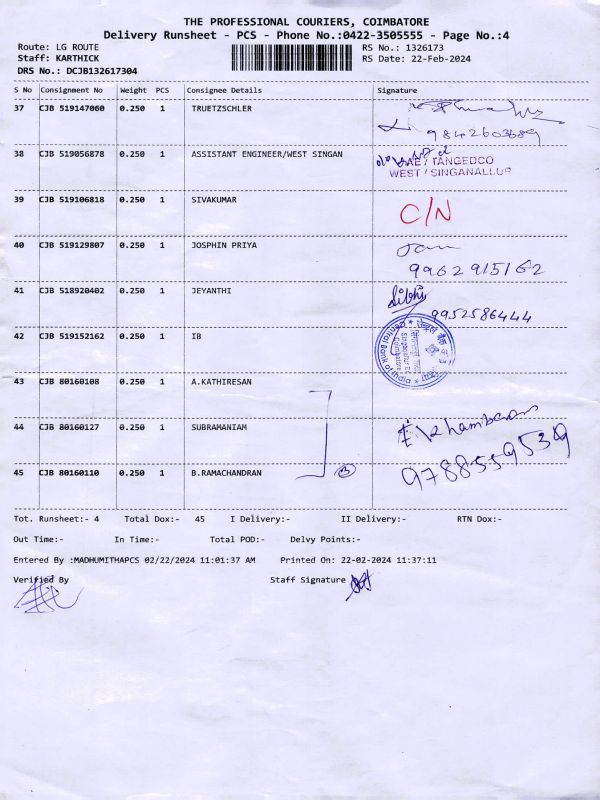 THE PROFESSIONAL COURIERS, COIMBATORE
Delivery Runsheet - PCS - Phone No.:0422-3505555 - Page No.:4
Route: LG ROUTE RS No.: 1326173
Staff: KARTHICK RS Date: 22-Feb-2024
DRS No.: DCJB132617304
S No Consignment No Weight PCS Consignee Details Signature
37 CJB 519147060 0.250 1 TRUETZSCHLER
9842603689
38 CJB 519056878 0.250 1 ASSISTANT ENGINEER/WEST SINGAN
AE / TANGEDCO
WEST / SINGANALLUR
39 CJB 519106818 0.250 1 SIVAKUMAR
C/N
40 CJB 519129807 0.250 1 JOSPHIN PRIYA
9962915162
41 CJB 518920402 0.250 1 JEYANTHI
9952586444
42 CJB 519152162 0.250 1 IB
Central Bank of India
43 CJB 80160108 0.250 1 A.KATHIRESAN
44 CJB 80160127 0.250 1 SUBRAMANIAM
45 CJB 80160110 0.250 1 B.RAMACHANDRAN
3
9788559539
Tot. Runsheet:- 4 Total Dox:- 45 I Delivery:- II Delivery:- RTN Dox:-
Out Time:- In Time:- Total POD:- Delvy Points:-
Entered By :MADHUMITHAPCS 02/22/2024 11:01:37 AM Printed On: 22-02-2024 11:37:11
Verified By Staff Signature